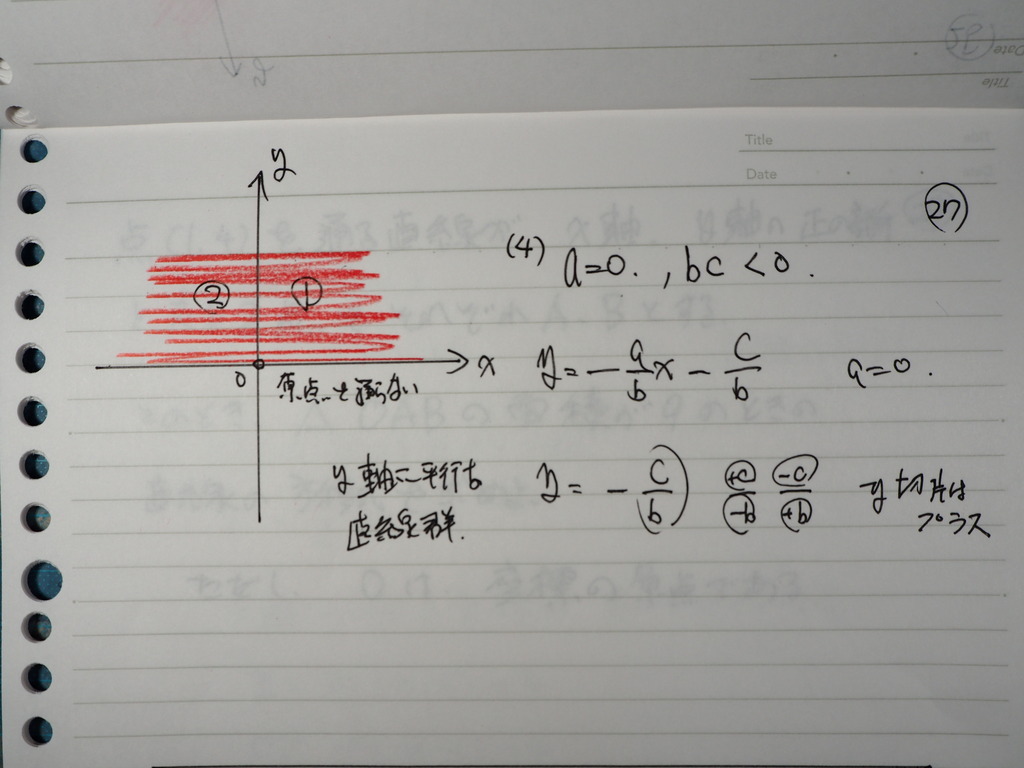 Title
Date
27
y
(4) a=0. , bc<0.
② ①
x
0
原点を通らない
y = - a/b x - c/b a=0.
y軸に平行な
直線群.
y = - (c/b) +c/-b -c/+b y切片は
プラス